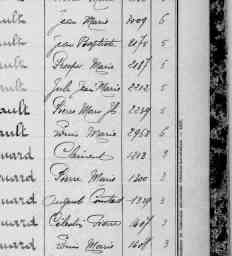 ault Jean Marie 2009 6
ault Jean Baptiste 2070 5
ault Prosper Marie 2187 5
ault Jule Jean Marie 2212 5
ault Pierre Marie Jh 2229 5
ault Louis Marie 2958 6
uard Clément 1213 3
uard Pierre Marie 1300 3
uard Auguste Constant 1339 3
uard Célestin Pierre 1607 3
uard Louis Marie 1608 3